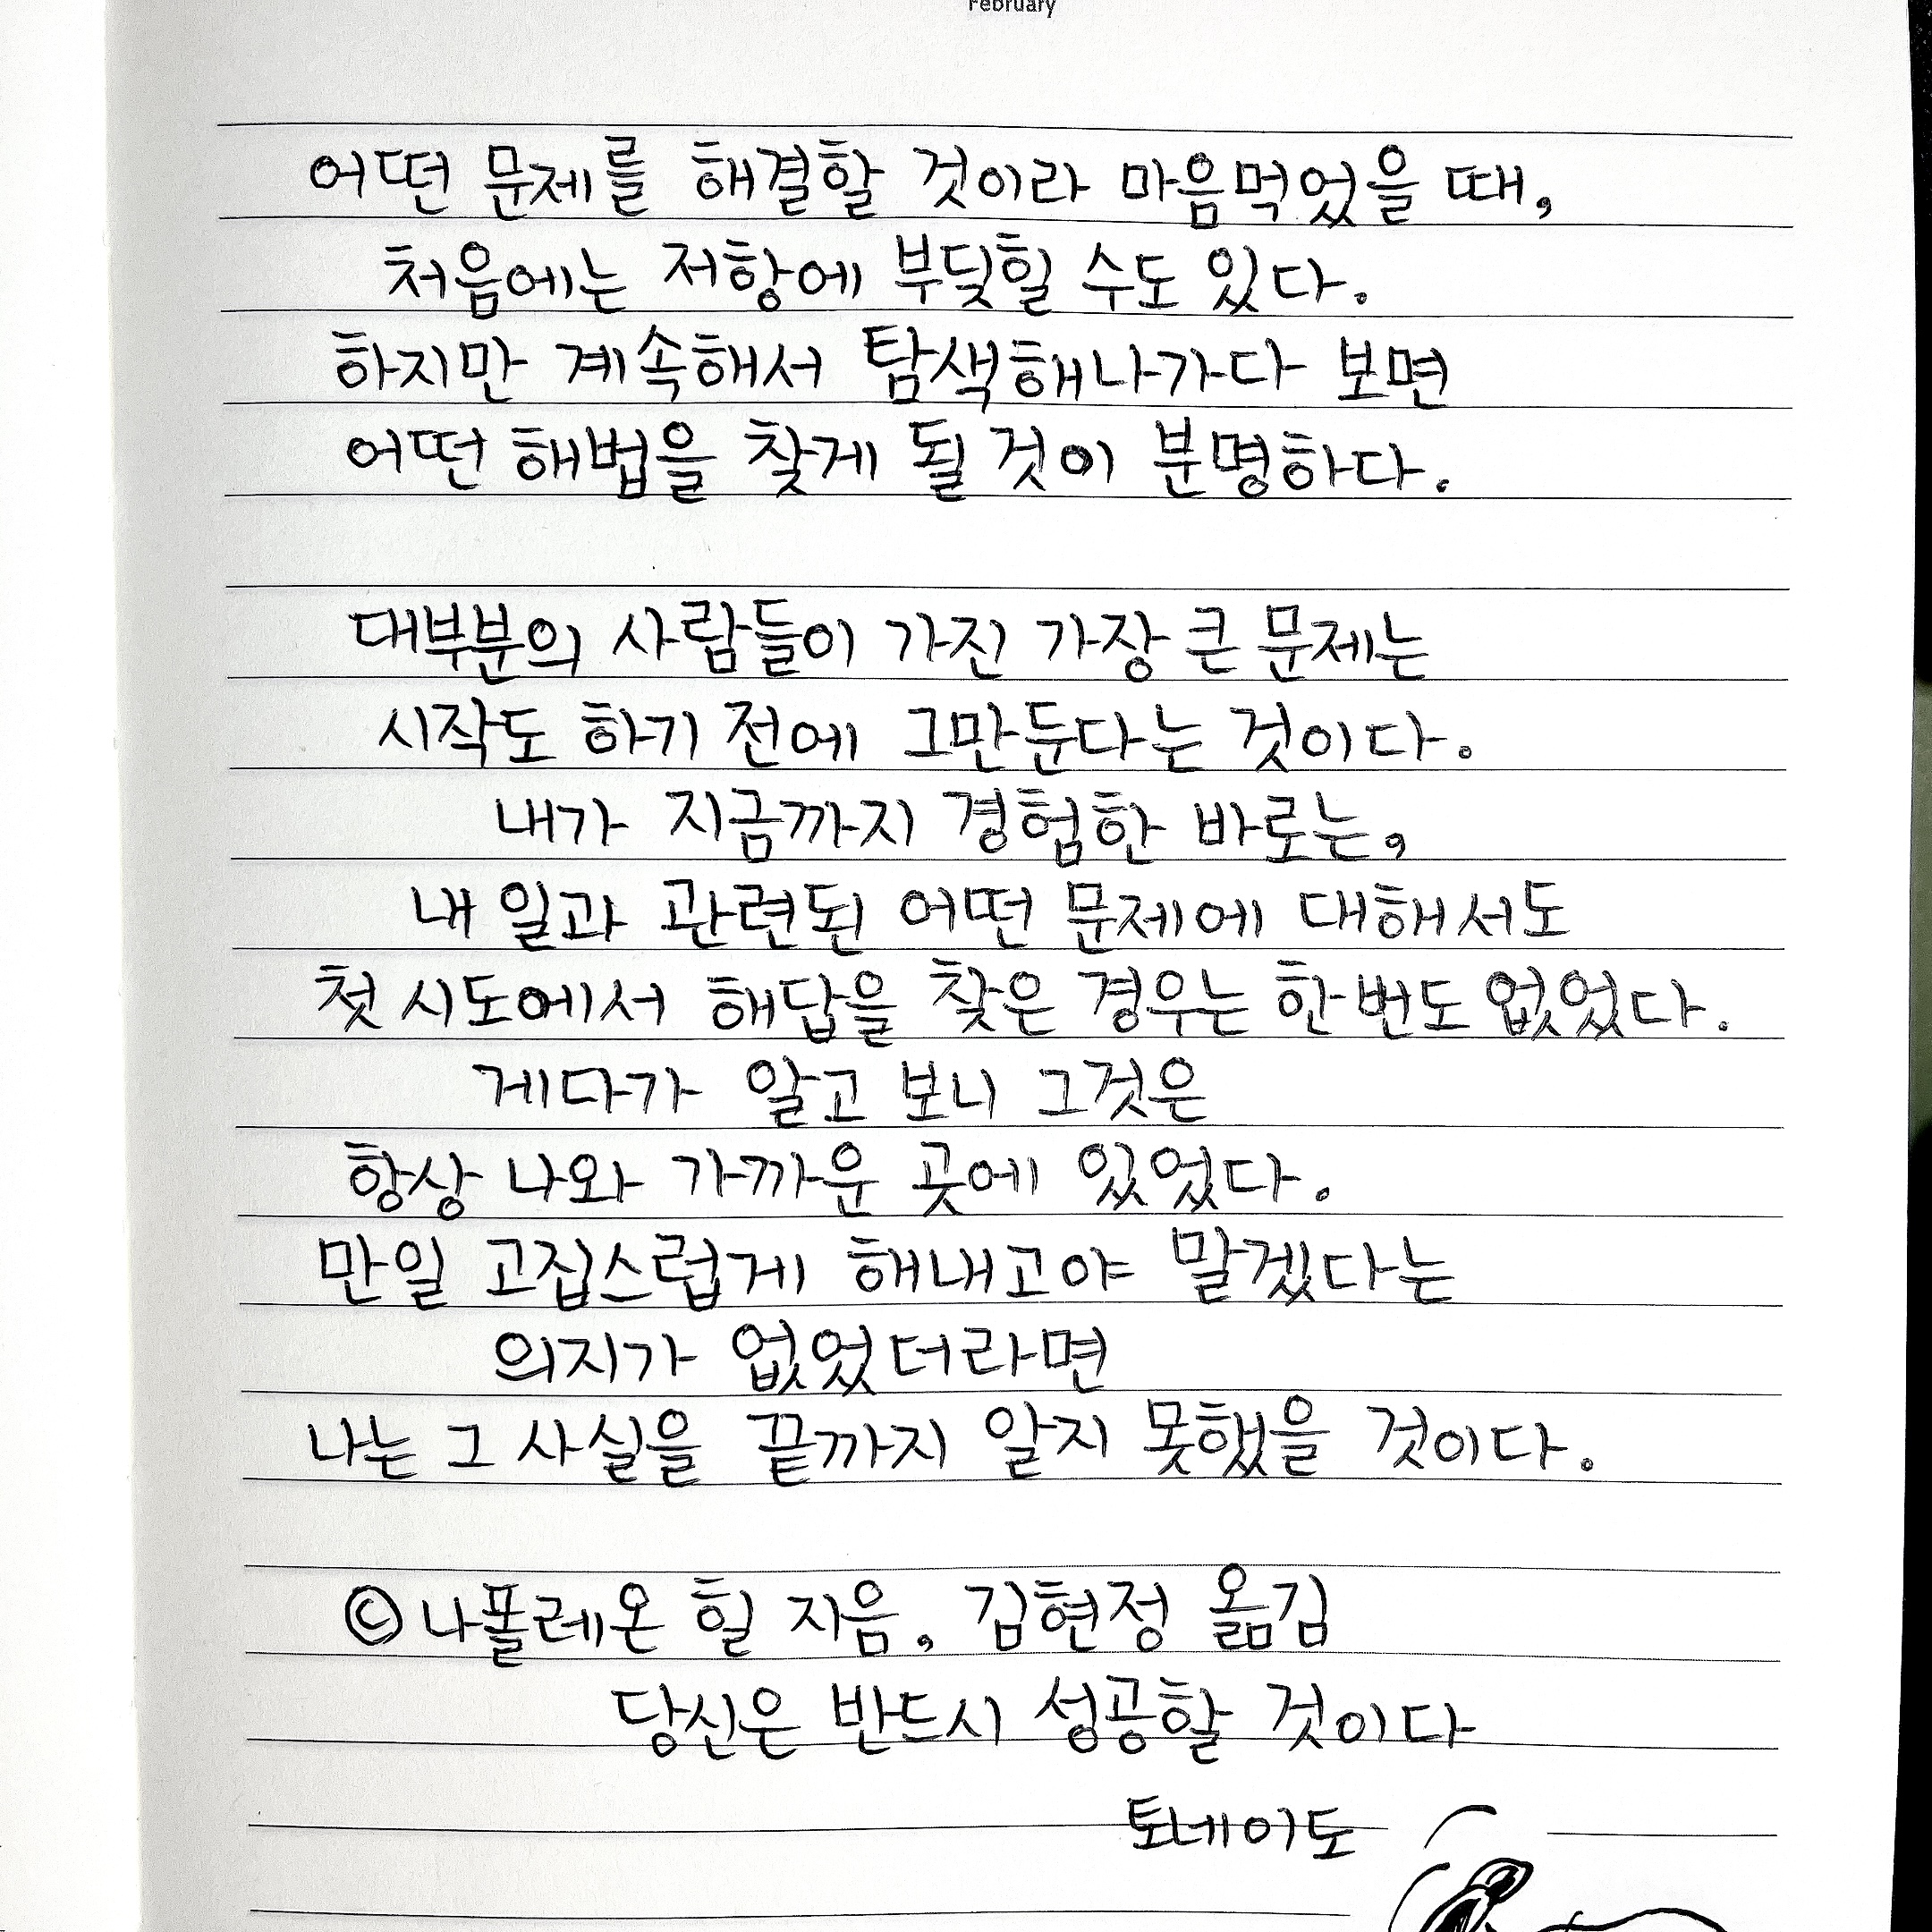 February
어떤 문제를 해결할 것이라 마음먹었을 때,
처음에는 저항에 부딪힐 수도 있다.
하지만 계속해서 탐색해나가다 보면
어떤 해법을 찾게 될 것이 분명하다.
대부분의 사람들이 가진 가장 큰 문제는
시작도 하기 전에 그만둔다는 것이다.
내가 지금까지 경험한 바로는,
내 일과 관련된 어떤 문제에 대해서도
첫 시도에서 해답을 찾은 경우는 한 번도 없었다.
게다가 알고 보니 그것은
항상 나와 가까운 곳에 있었다.
만일 고집스럽게 해내고야 말겠다는
의지가 없었더라면
나는 그 사실을 끝까지 알지 못했을 것이다.
©나폴레온 힐 지음, 김현정 옮김
당신은 반드시 성공할 것이다
토네이도